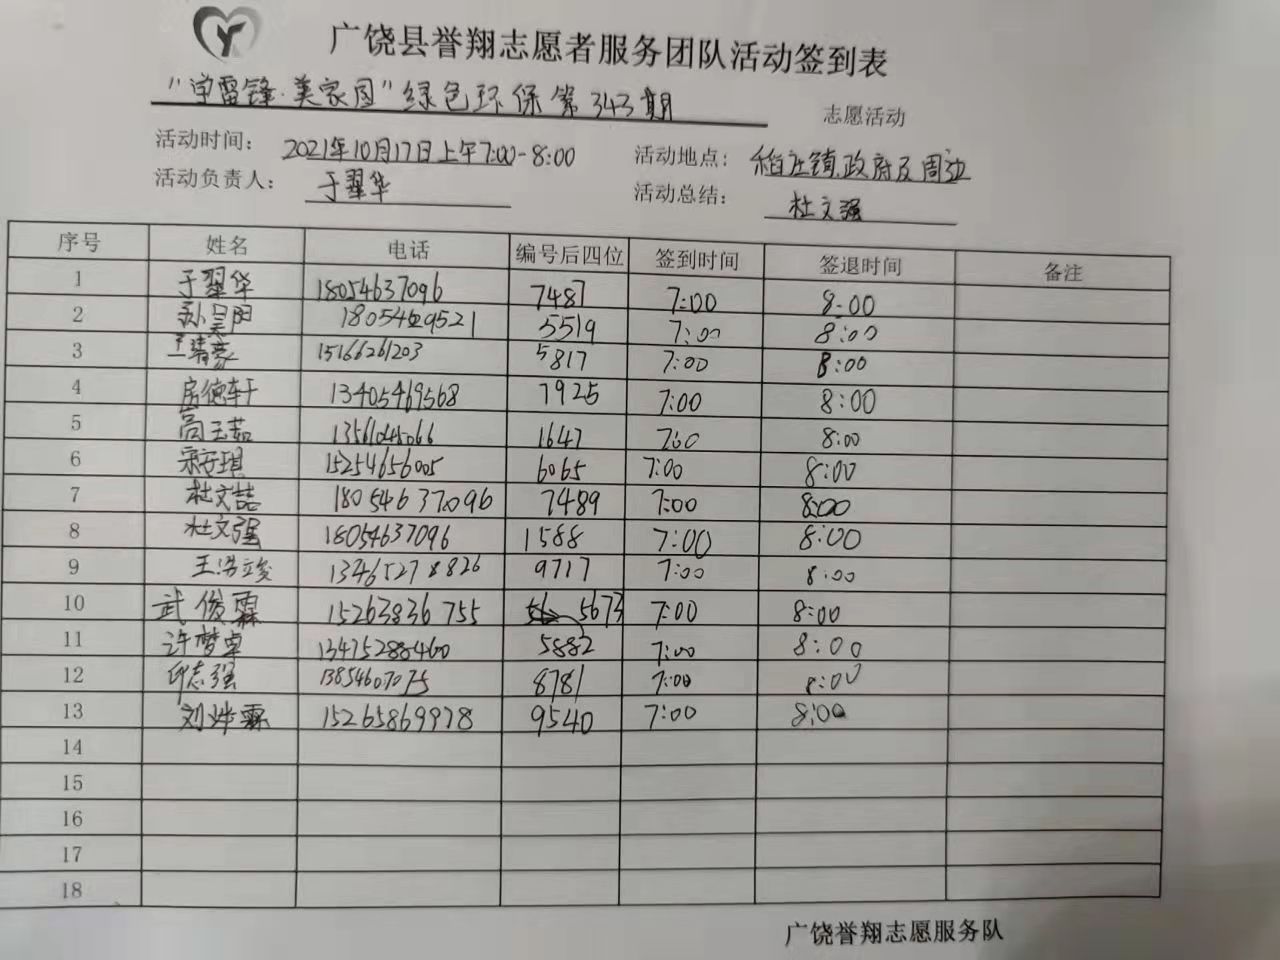 广饶县誉翔志愿者服务团队活动签到表
"学雷锋·美家园"绿色环保第343期 志愿活动
活动时间: 2021年10月17日上午7:00-8:00 活动地点: 稻庄镇政府及周边
活动负责人: 于翠华 活动总结: 杜文强
序号 姓名 电话 编号后四位 签到时间 签退时间 备注
1 于翠华 18054637096 7487 7:00 8:00
2 孙昊阳 5519 7:00 8:00
3 15166261203 5817 7:00 8:00
4 房德轩 13405469568 7925 7:00 8:00
5 高玉茹 1647 7:00 8:00
6 宋安琪 15254656005 6065 7:00 8:00
7 杜文喆 18054637096 7489 7:00 8:00
8 杜文强 18054637096 1588 7:00 8:00
9 王浩竣 13465278826 9717 7:00 8:00
10 武俊霖 15263836755 5673 7:00 8:00
11 许梦卓 13475288460 5882 7:00 8:00
12 印志强 13854607075 8781 7:00 8:00
13 15265869978 9540 7:00 8:00
14
15
16
17
18
广饶誉翔志愿服务队